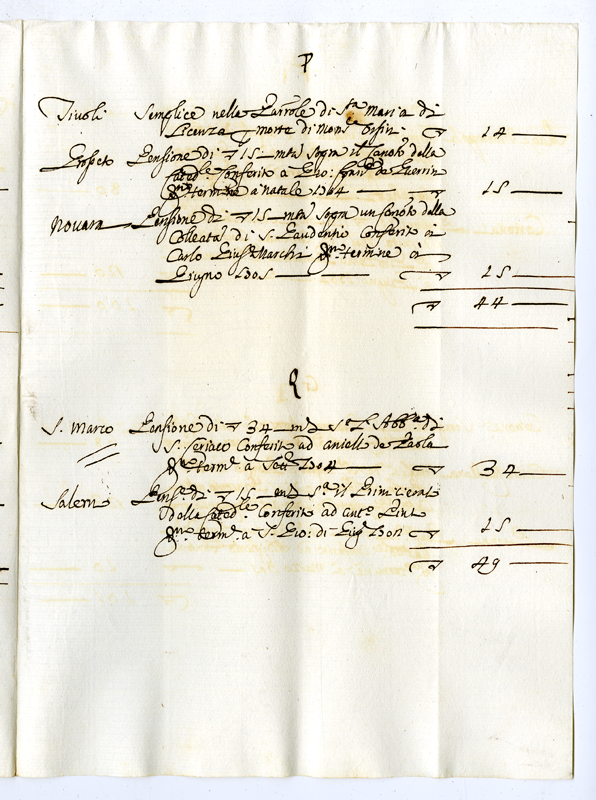 P
Tivoli Semplice nelle Parrole di Sta Maria di
Licenza morte di Mons.re Orsin. 14
Pensione di 15 mta sopra il Canon.to della
Cated.le Conferito a Gio: de Guerin
p.mo termine a natale 1304 15
Novara Pensione di 15 mta sopra un Canon.to della
Colleg.ata di S. Gaudentio Conferito à
Carlo Gius.e Marchi p.mo termine à
Giugno 1305 15
44
Q
S. Marco Pensione di 34 m.ta S.a l'Abb.a di
S. Conferito ad Aniello de Paola
p.mo term.e a Sett.e 1304 34
Salern Pens.e di 15 m.ta S.a il Primicerat
della Catted.le Conferito ad Ant.o
p.mo term.e a S. Gio: di Giug 15
49